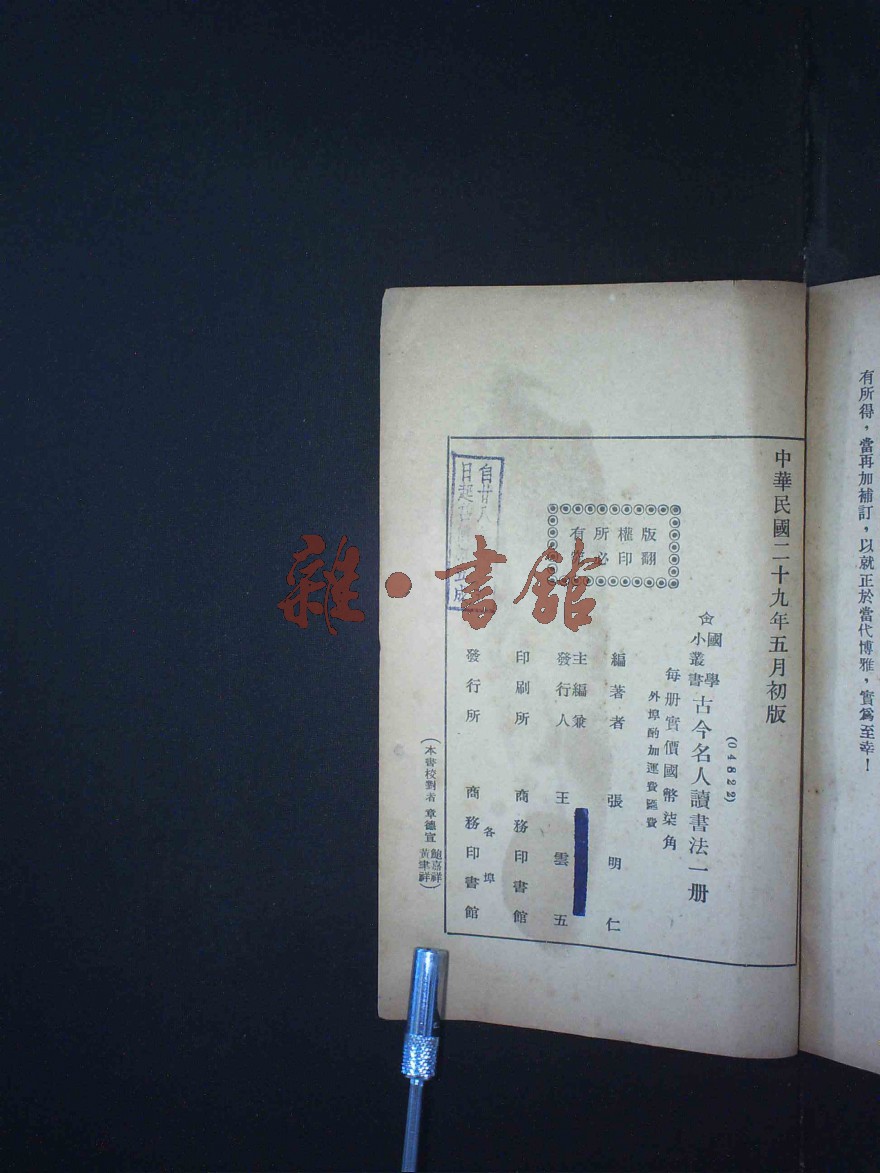 有所得，當再加補訂，以就正於當代博雅，實爲至幸！
中華民國二十九年五月初版
(04822)
國學
小叢書
古今名人讀書法一册
每册實價國幣柒角
外埠酌加運費匯費
版權所有
翻印必
編著者 張明仁
主編兼
發行人 王雲五
印刷所 商務印書館
各埠
發行所 商務印書館
(本書校對者 章德宣 鮑嘉祥 黃聿祥)
自廿八
日起
雜·書館